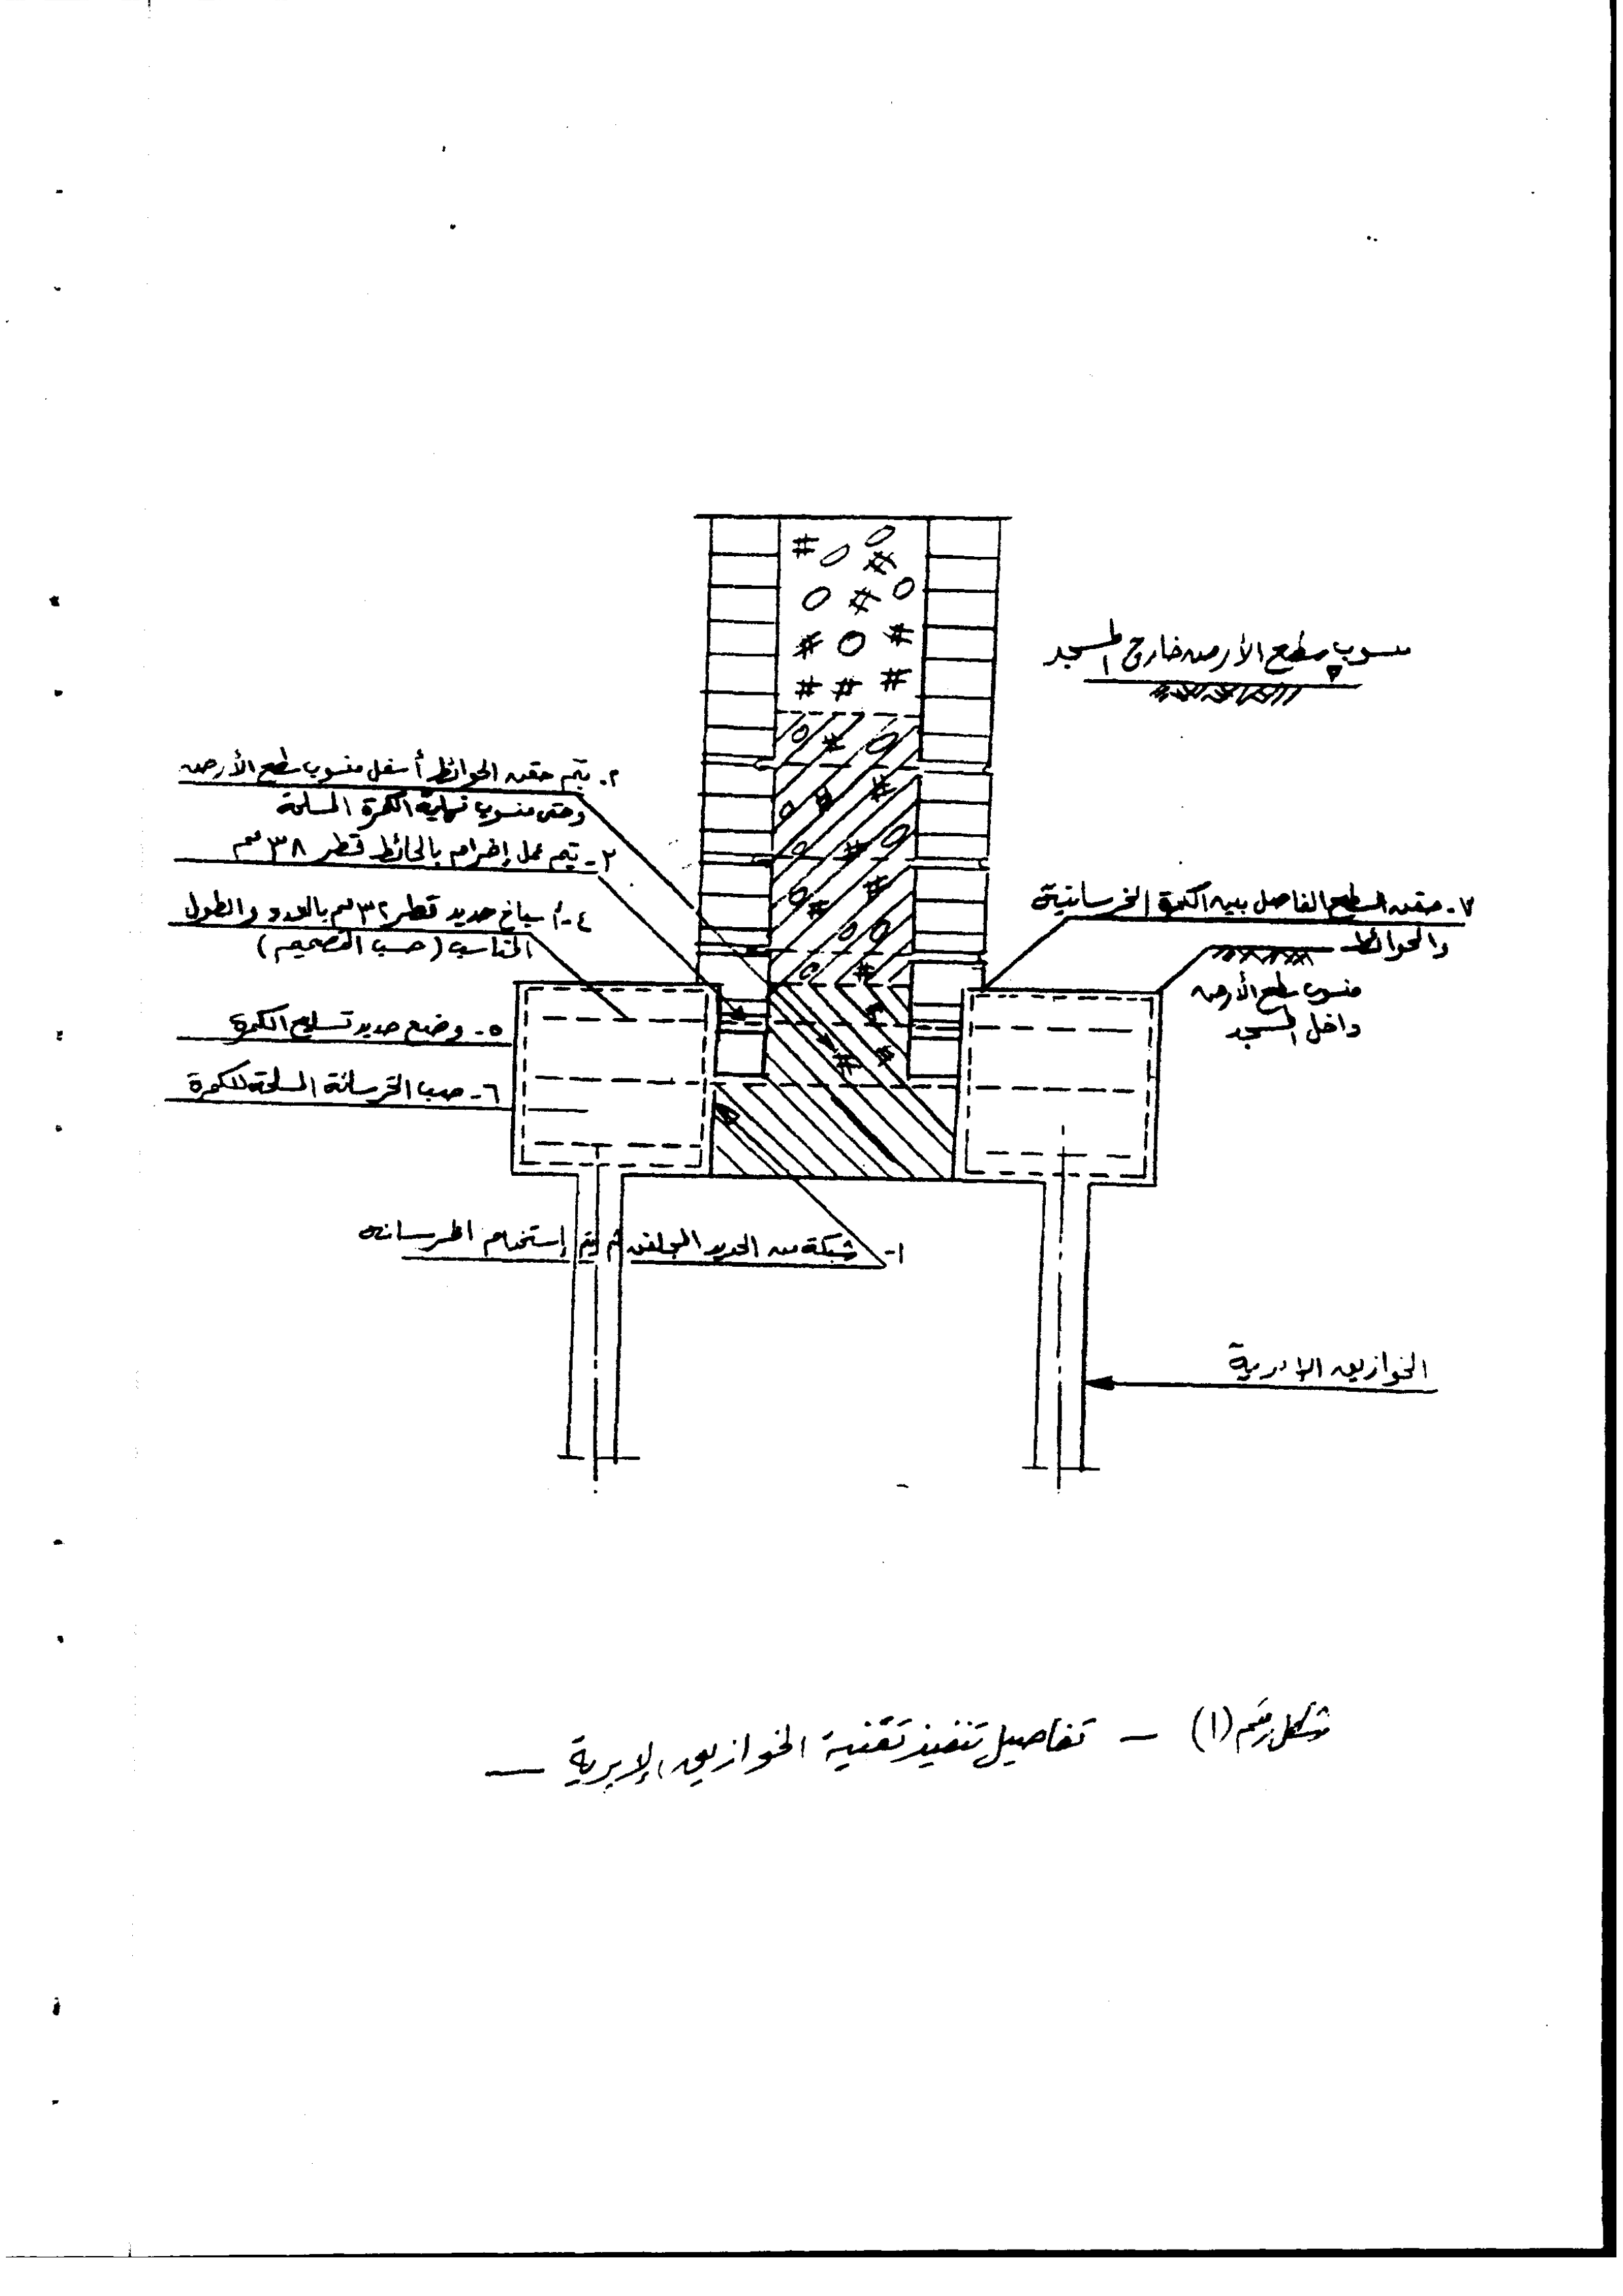 منسوب سطح الأرض خارج المسجد
٢- يتم حقن الحوائط أسفل منسوب سطح الأرض
وحتى منسوب نهاية الكمرة المسلحة
٣- يتم عمل إخرام بالحائط قطر ٣٨ مم
٤- أسياخ حديد قطر ٣٢ مم بالعدد والطول
المناسب (حسب التصميم)
٥- وضع حديد تسليح الكمرة
٦- صب الخرسانة المسلحة للكمرة
٧- حقن السطح الفاصل بين الكمرة الخرسانية
والحوائط
منسوب سطح الأرض
داخل المسجد
١- شبكة من الحديد المجلفن ثم يتم إستخدام الخرسانة
الخوازيق الإبرية
شكل رقم (١) - تفاصيل تنفيذ تقنية الخوازيق الإبرية -